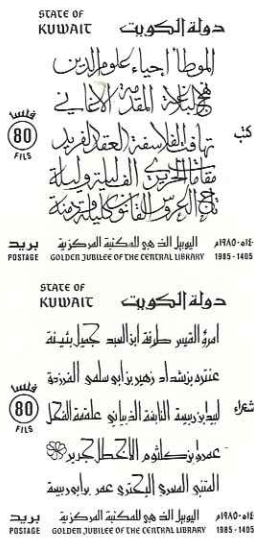 STATE OF
KUWAIT
دولة الكويت
الموطأ إحياء علوم الدين
نهج البلاغة المقدمة الأغاني
تهافت الفلاسفة العقد الفريد
مقامات الحريري ألف ليلة وليلة
تاج العروس القانون كليلة ودمنة
كتب
80 فلسا
FILS
١٤٠٥هـ ١٩٨٥م
اليوبيل الذهبي للمكتبة المركزية
بريد
POSTAGE GOLDEN JUBILEE OF THE CENTRAL LIBRARY 1985 - 1405
STATE OF
KUWAIT
دولة الكويت
امرؤ القيس طرفة ابن العبد جميل بثينة
عنترة بن شداد زهير بن أبي سلمى الفرزدق
لبيد بن ربيعة النابغة الذبياني علقمة الفحل
عمرو بن كلثوم الأخطل جرير
المتنبي المعري البحتري عمر بن أبي ربيعة
شعراء
80 فلسا
FILS
١٤٠٥هـ ١٩٨٥م
اليوبيل الذهبي للمكتبة المركزية
بريد
POSTAGE GOLDEN JUBILEE OF THE CENTRAL LIBRARY 1985 - 1405